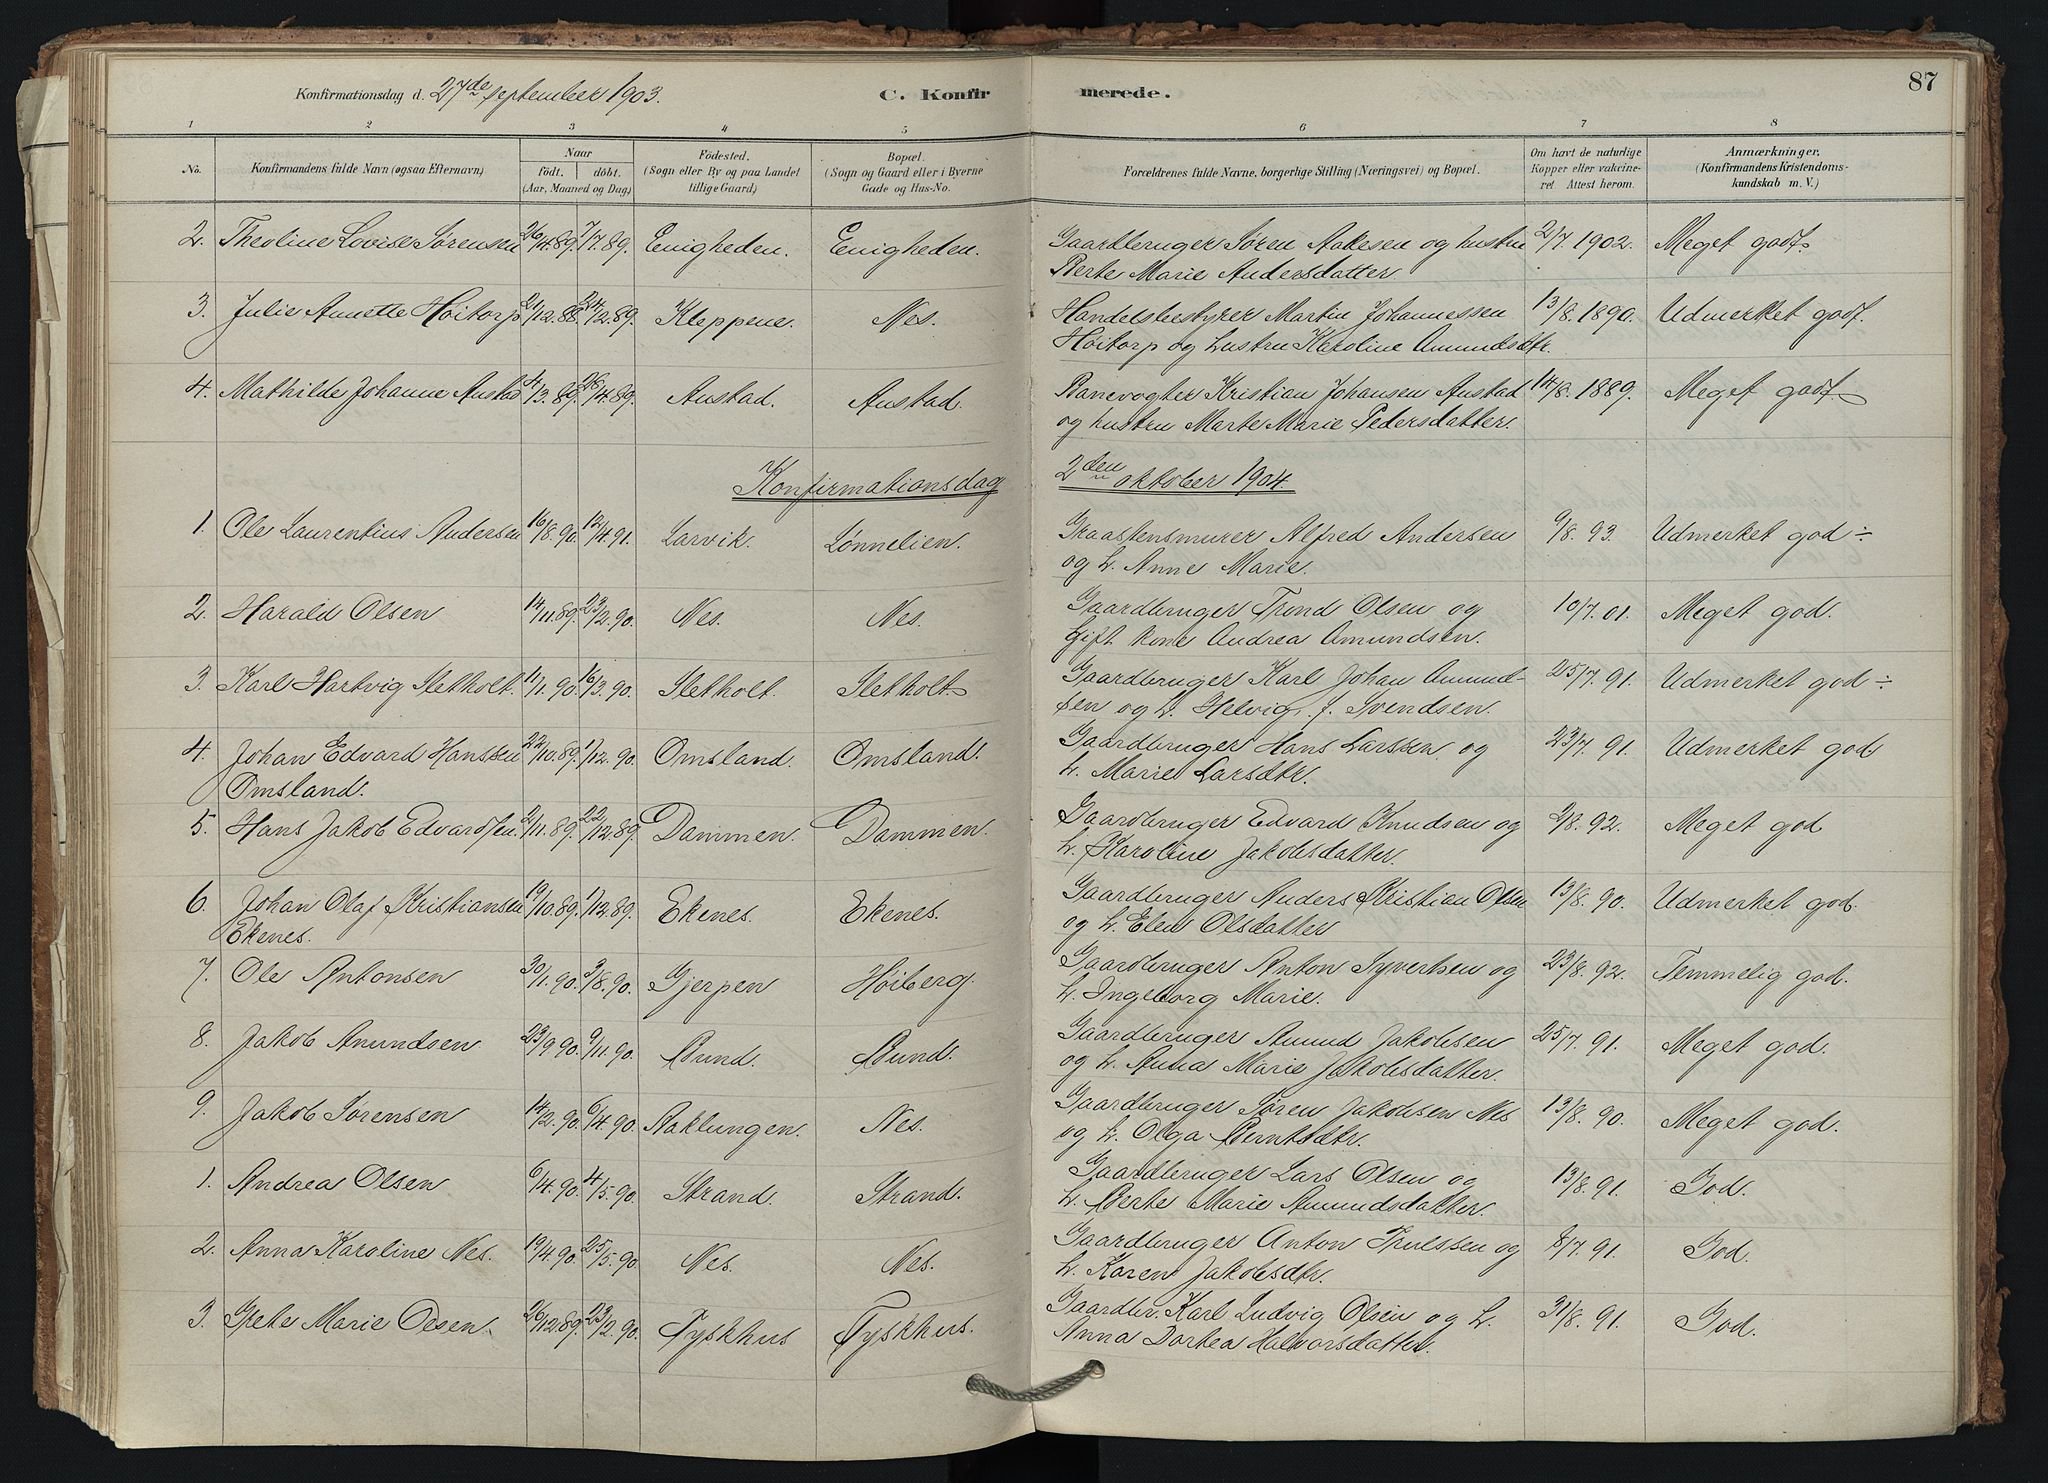 87
Konfirmationsdag d. 27de september 1903.
C. Konfir merede.
1 2 3 4 5 6 7 8
No.
Konfirmandens fulde Navn (ogsaa Efternavn)
Naar
født. døbt.
(Aar, Maaned og Dag.)
Fødested.
(Sogn eller By og paa Landet
tillige Gaard)
Bopæl.
(Sogn og Gaard eller i Byerne
Gade og Hus-No.
Forældrenes fulde Navne, borgerlige Stilling (Næringsvei) og Bopæl.
Om havt de naturlige
Kopper eller vakcine-
ret Attest herom.
Anmærkninger.
(Konfirmandens Kristendoms-
kundskab m. V.)
2. Theoline Lovise Sørensen 26/4.89. 7/7.89. Enigheden. Enigheden. Gaardbruger Søren Aakesen og hustru 2/7 1902. Meget godt.
Berte Marie Andersdatter.
3. Julie Annette Høitorp 21/12.88. 24/2.89. Kleppene. Nes. Handelsbestyrer Martin Johannessen 13/8.1890. Udmerket godt.
Høitorp og hustru Karoline Amundsdtr.
4. Mathilde Johanne Austad 4/3.89. 28/4.89. Austad. Austad. Banevogter Kristian Johansen Austad 14/8.1889. Meget godt
og hustru Marte Marie Pedersdatter.
Konfirmationsdag 2den oktober 1904.
1. Ole Laurentius Andersen 16/8.90. 12/4.91. Larvik. Lønnelien. Graastensmurer Alfred Andersen 9/8.93. Udmerket god ÷
og h. Anne Marie.
2. Harald Olsen 14/11.89. 23/2.90. Nes. Nes. Gaardbruger Trond Olsen og 10/7.01. Meget god.
gift kone Andrea Amundsen.
3. Karl Hartvig Stetholt. 11/1.90. 16/3.90. Stetholt. Stetholt Gaardbruger Karl Johan Amund- 25/7.91. Udmerket god ÷
sen og h. Helvig f. Svendsen.
4. Johan Edvard Hanssen 22/10.89. 1/12.90. Omsland. Omsland. Gaardbruger Hans Larssen og 23/7.91. Udmerket god
Omsland. h. Marie Larsdtr.
5. Hans Jakob Edvardsen. 2/11.89. 22/12.89. Dammen. Dammen. Gaardbruger Edvard Knudsen og 2/8.92. Meget god
h. Karoline Jakobsdatter.
6. Johan Olaf Kristiansen 19/10.89. 1/12.89. Ekenes. Ekenes. Gaardbruger Anders Kristian Olsen 13/8.90. Udmerket god.
Ekenes. og h. Elen Olsdatter
7. Ole Antonsen 30/1.90. 3/8.90. Gjerpen Høiberg. Gaardbruger Anton Syvertsen og 23/8.92. Temmelig god.
h. Ingeborg Marie.
8. Jakob Amundsen 23/9.90. 9/11.90. Bund. Bund. Gaardbruger Amund Jakobsen 25/7.91. Meget god.
og h. Anna Marie Jakobsdatter.
9. Jakob Sørensen 14/2.90. 6/4.90. Aaklungen. Nes. Gaardbruger Søren Jakobsen Nes 13/8.90. Meget god.
og h. Olga Berntsdtr.
1. Andrea Olsen 6/4.90. 4/5.90. Strand. Strand. Gaardbruger Lars Olsen og 13/8.91. God.
h. Berte Marie Amundsdatter.
2. Anna Karoline Nes. 19/4.90. 25/5.90. Nes. Nes. Gaardbruger Anton Trulssen og 8/7.91. God.
h. Karen Jakobsdtr.
3. Grete Marie Olsen. 26/12.89. 23/2.90. Tyskhus Tyskhus. Gaardbr. Karl Ludvig Olsen og h. 31/8.91. God.
Anna Dortea Halvorsdatter.